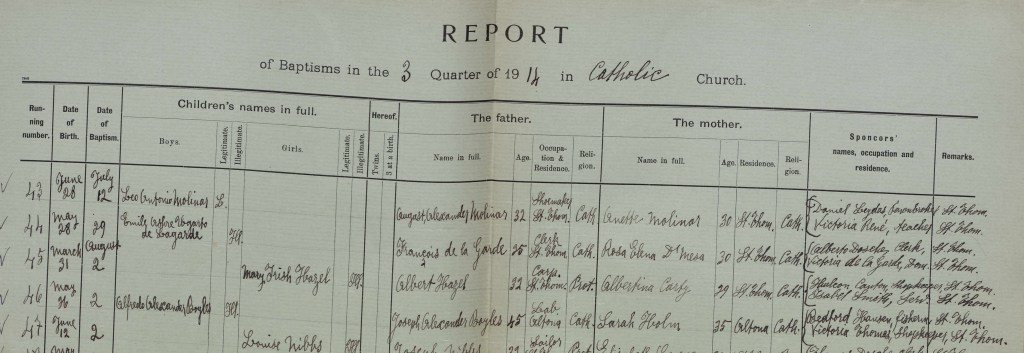 REPORT
of Baptisms in the 3 Quarter of 1914 in Catholic Church.
Running number. Date of Birth. Date of Baptism. Children's names in full. Boys. Legitimate. Illegitimate. Girls. Legitimate. Illegitimate. Hereof. Twins. 3 at a birth. The father. Name in full. Age. Occupation & Residence. Religion. The mother. Name in full. Age. Residence. Religion. Sponcors' names, occupation and residence. Remarks.
43 June 28 July 12 Leo Antonio Molinar L. August Alexander Molinar 32 Shoemaker St. Thom. Cath. Anette Molinar 30 St. Thom. Cath. Daniel St. Thom. Victoria René, teacher St. Thom.
44 May 28 29 Emile de Lagarde Ill. François de la Garde 25 Clerk St. Thom. Cath. Rosa Elena 30 St. Thom. Cath. Clerk, St. Thom. Victoria de la Garde, Dom. St. Thom.
45 March 31 August 2 Mary Hazel Ill. Albert Hazel 32 Carp. St. Thom. Prot. Albertina Carty 29 St. Thom. Cath. Shopkeeper, St. Thom. Isabel Smith, Serv. St. Thom.
46 May 16 2 Alfredo Alexander Boyles Ill. Joseph Alexander Boyles 45 Lab. Altona Cath. Sarah 35 Altona Cath. Bedford Hansen, Fisherm. St. Thom. Victoria Thomas, Shopkeeper, St. Thom.
47 June 12 2 Louise Nibbs Ill. Joseph Nibbs Tailor